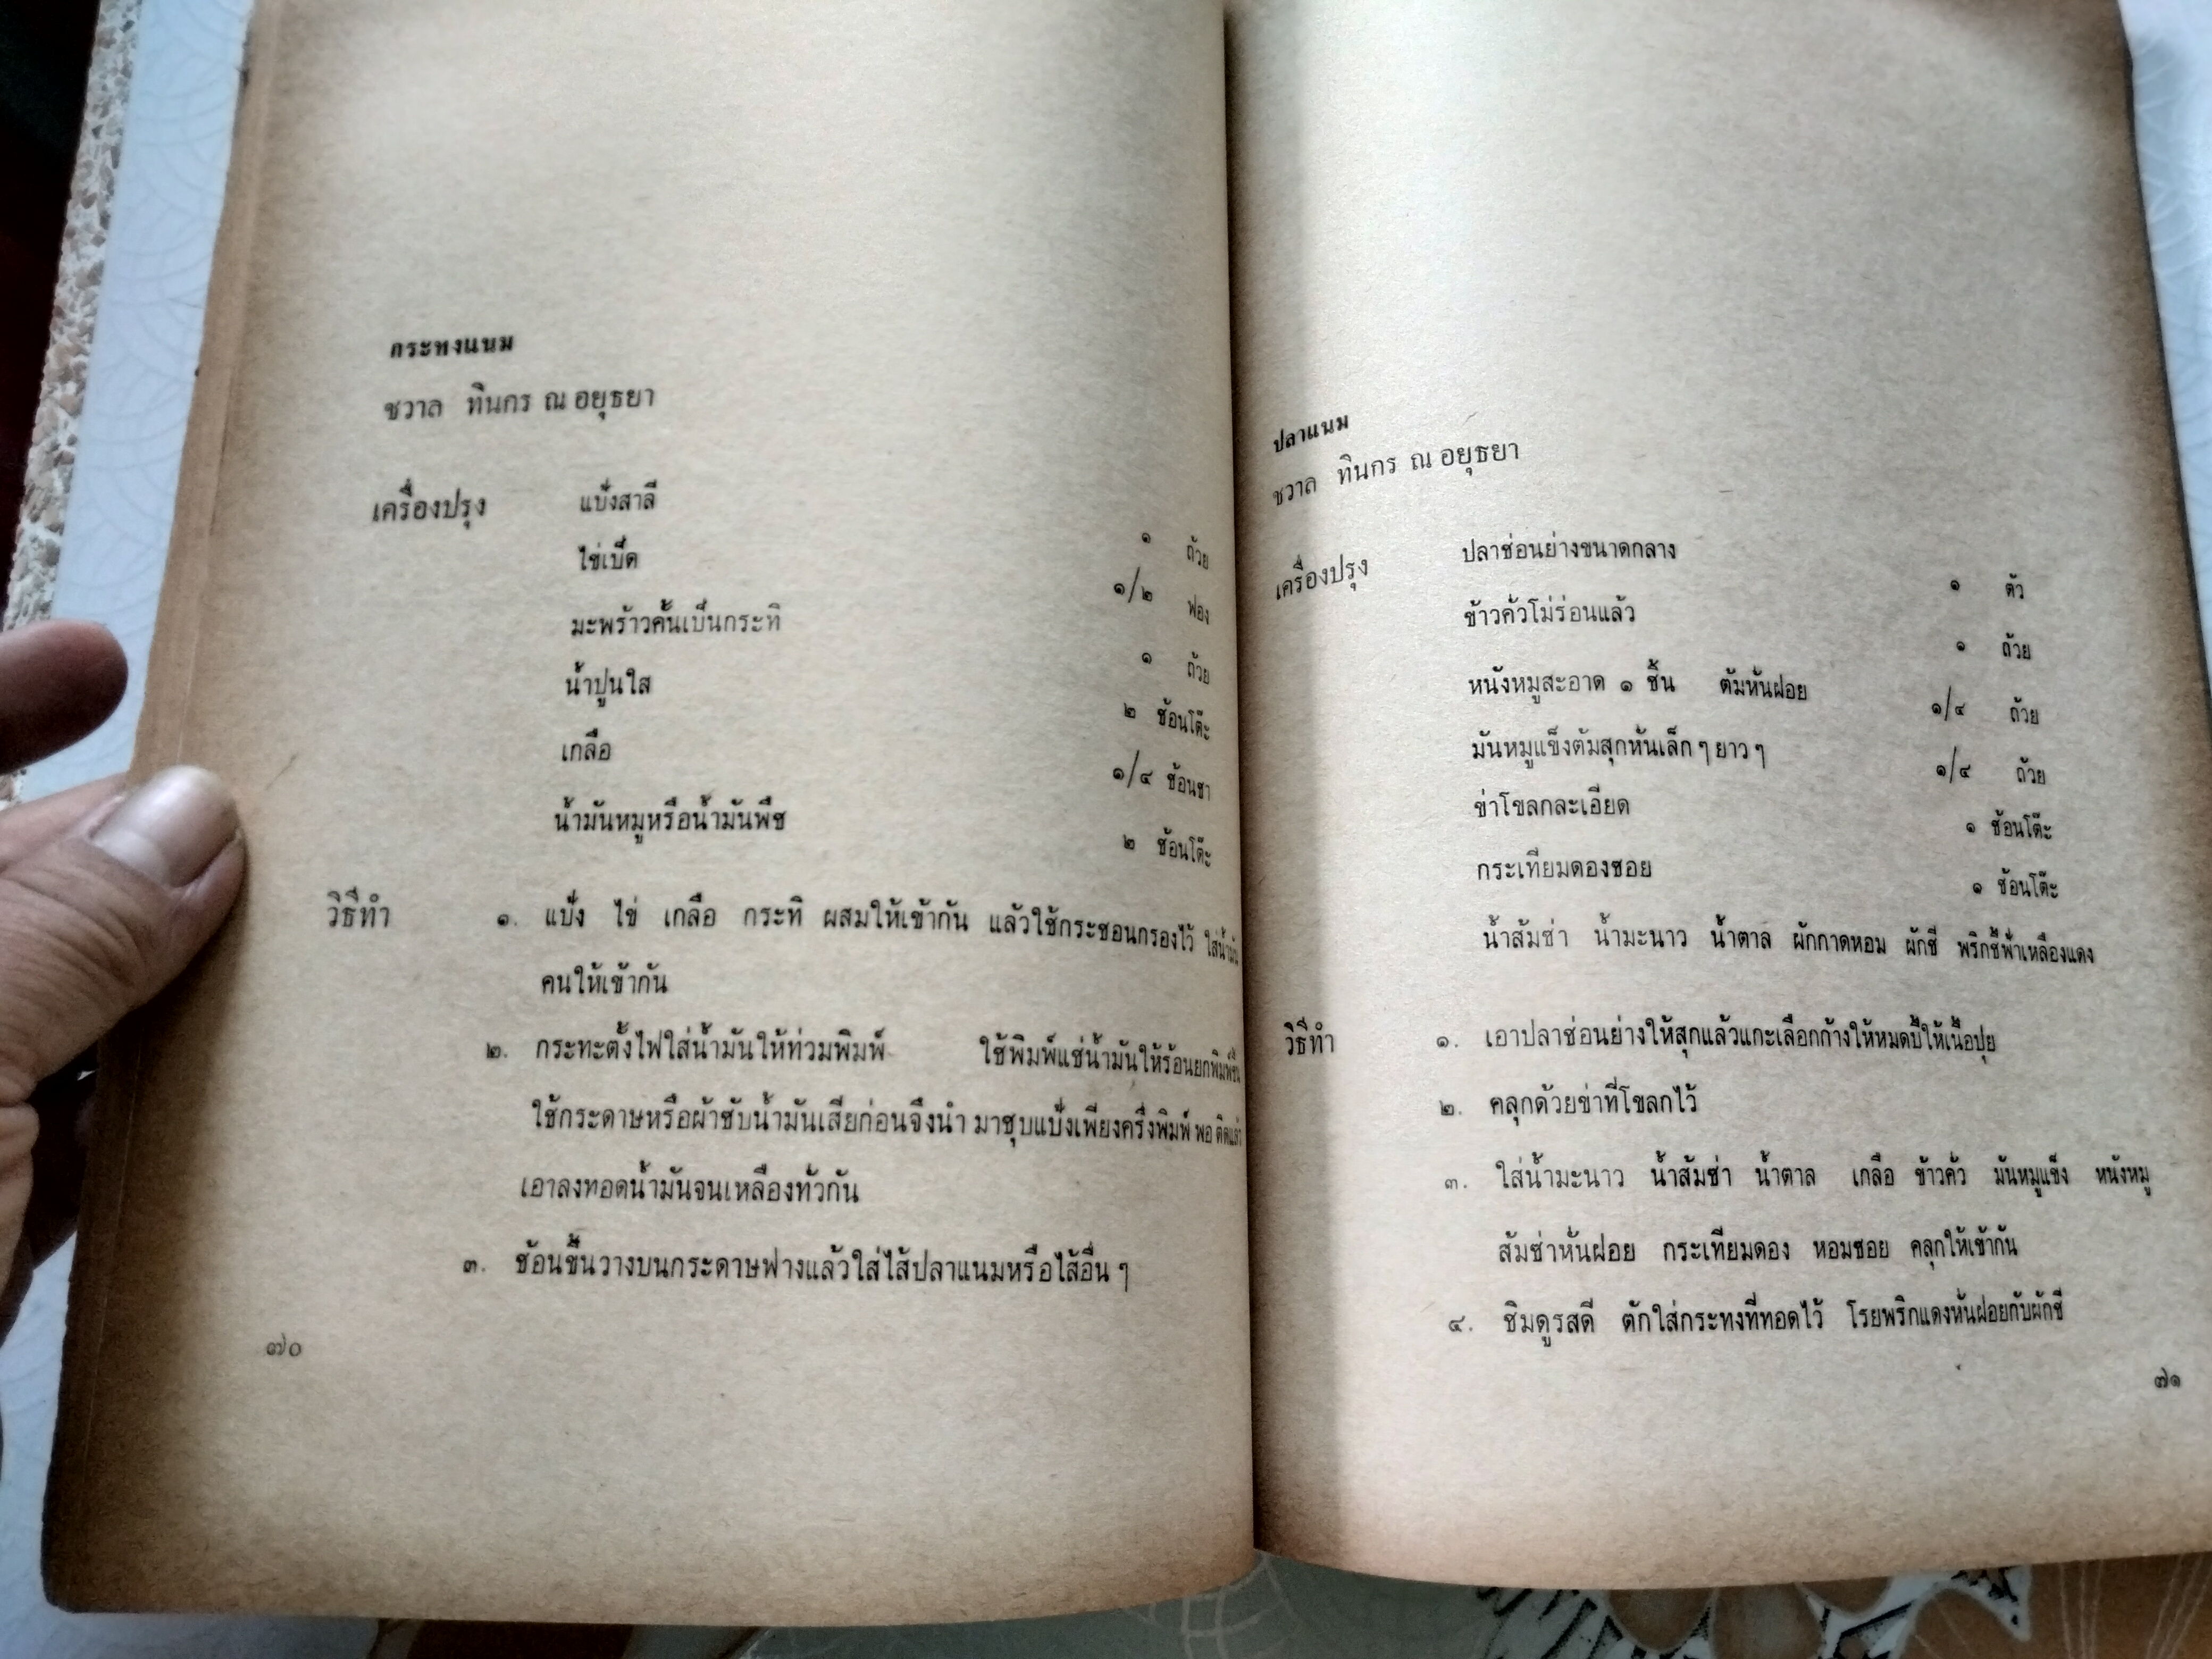 กระทงแนม
ชวาล ทินกร ณ อยุธยา
เครื่องปรุง แป้งสาลี ๑ ถ้วย
ไข่เป็ด ๑/๒ ฟอง
มะพร้าวคั้นเป็นกระทิ ๑ ถ้วย
น้ำปูนใส ๒ ช้อนโต๊ะ
เกลือ ๑/๔ ช้อนชา
น้ำมันหมูหรือน้ำมันพืช ๒ ช้อนโต๊ะ
วิธีทำ ๑. แป้ง ไข่ เกลือ กระทิ ผสมให้เข้ากัน แล้วใช้กระชอนกรองไว้ ใส่น้ำมัน
คนให้เข้ากัน
๒. กระทะตั้งไฟใส่น้ำมันให้ท่วมพิมพ์ ใช้พิมพ์แช่น้ำมันให้ร้อนยกพิมพ์ขึ้น
ใช้กระดาษหรือผ้าซับน้ำมันเสียก่อนจึงนำ มาชุบแป้งเพียงครึ่งพิมพ์ พอ
เอาลงทอดน้ำมันจนเหลืองทั่วกัน
๓. ช้อนขึ้นวางบนกระดาษฟางแล้วใส่ไส้ปลาแนมหรือไส้อื่น ๆ
๗๐
ปลาแนม
ชวาล ทินกร ณ อยุธยา
เครื่องปรุง ปลาช่อนย่างขนาดกลาง ๑ ตัว
ข้าวคั่วโม่ร่อนแล้ว ๑ ถ้วย
หนังหมูสะอาด ๑ ชิ้น ต้มหั่นฝอย ๑/๔ ถ้วย
มันหมูแข็งต้มสุกหั่นเล็ก ๆ ยาว ๆ ๑/๔ ถ้วย
ข่าโขลกละเอียด ๑ ช้อนโต๊ะ
กระเทียมดองซอย ๑ ช้อนโต๊ะ
น้ำส้มซ่า น้ำมะนาว น้ำตาล ผักกาดหอม ผักชี พริกชี้ฟ้าเหลืองแดง
วิธีทำ ๑. เอาปลาช่อนย่างให้สุกแล้วแกะเลือกก้างให้หมดบี้ให้เนื้อปุย
๒. คลุกด้วยข่าที่โขลกไว้
๓. ใส่น้ำมะนาว น้ำส้มซ่า น้ำตาล เกลือ ข้าวคั่ว มันหมูแข็ง หนังหมู
ส้มซ่าหั่นฝอย กระเทียมดอง หอมซอย คลุกให้เข้ากัน
๔. ชิมดูรสดี ตักใส่กระทงที่ทอดไว้ โรยพริกแดงหั่นฝอยกับผักชี
๗๑